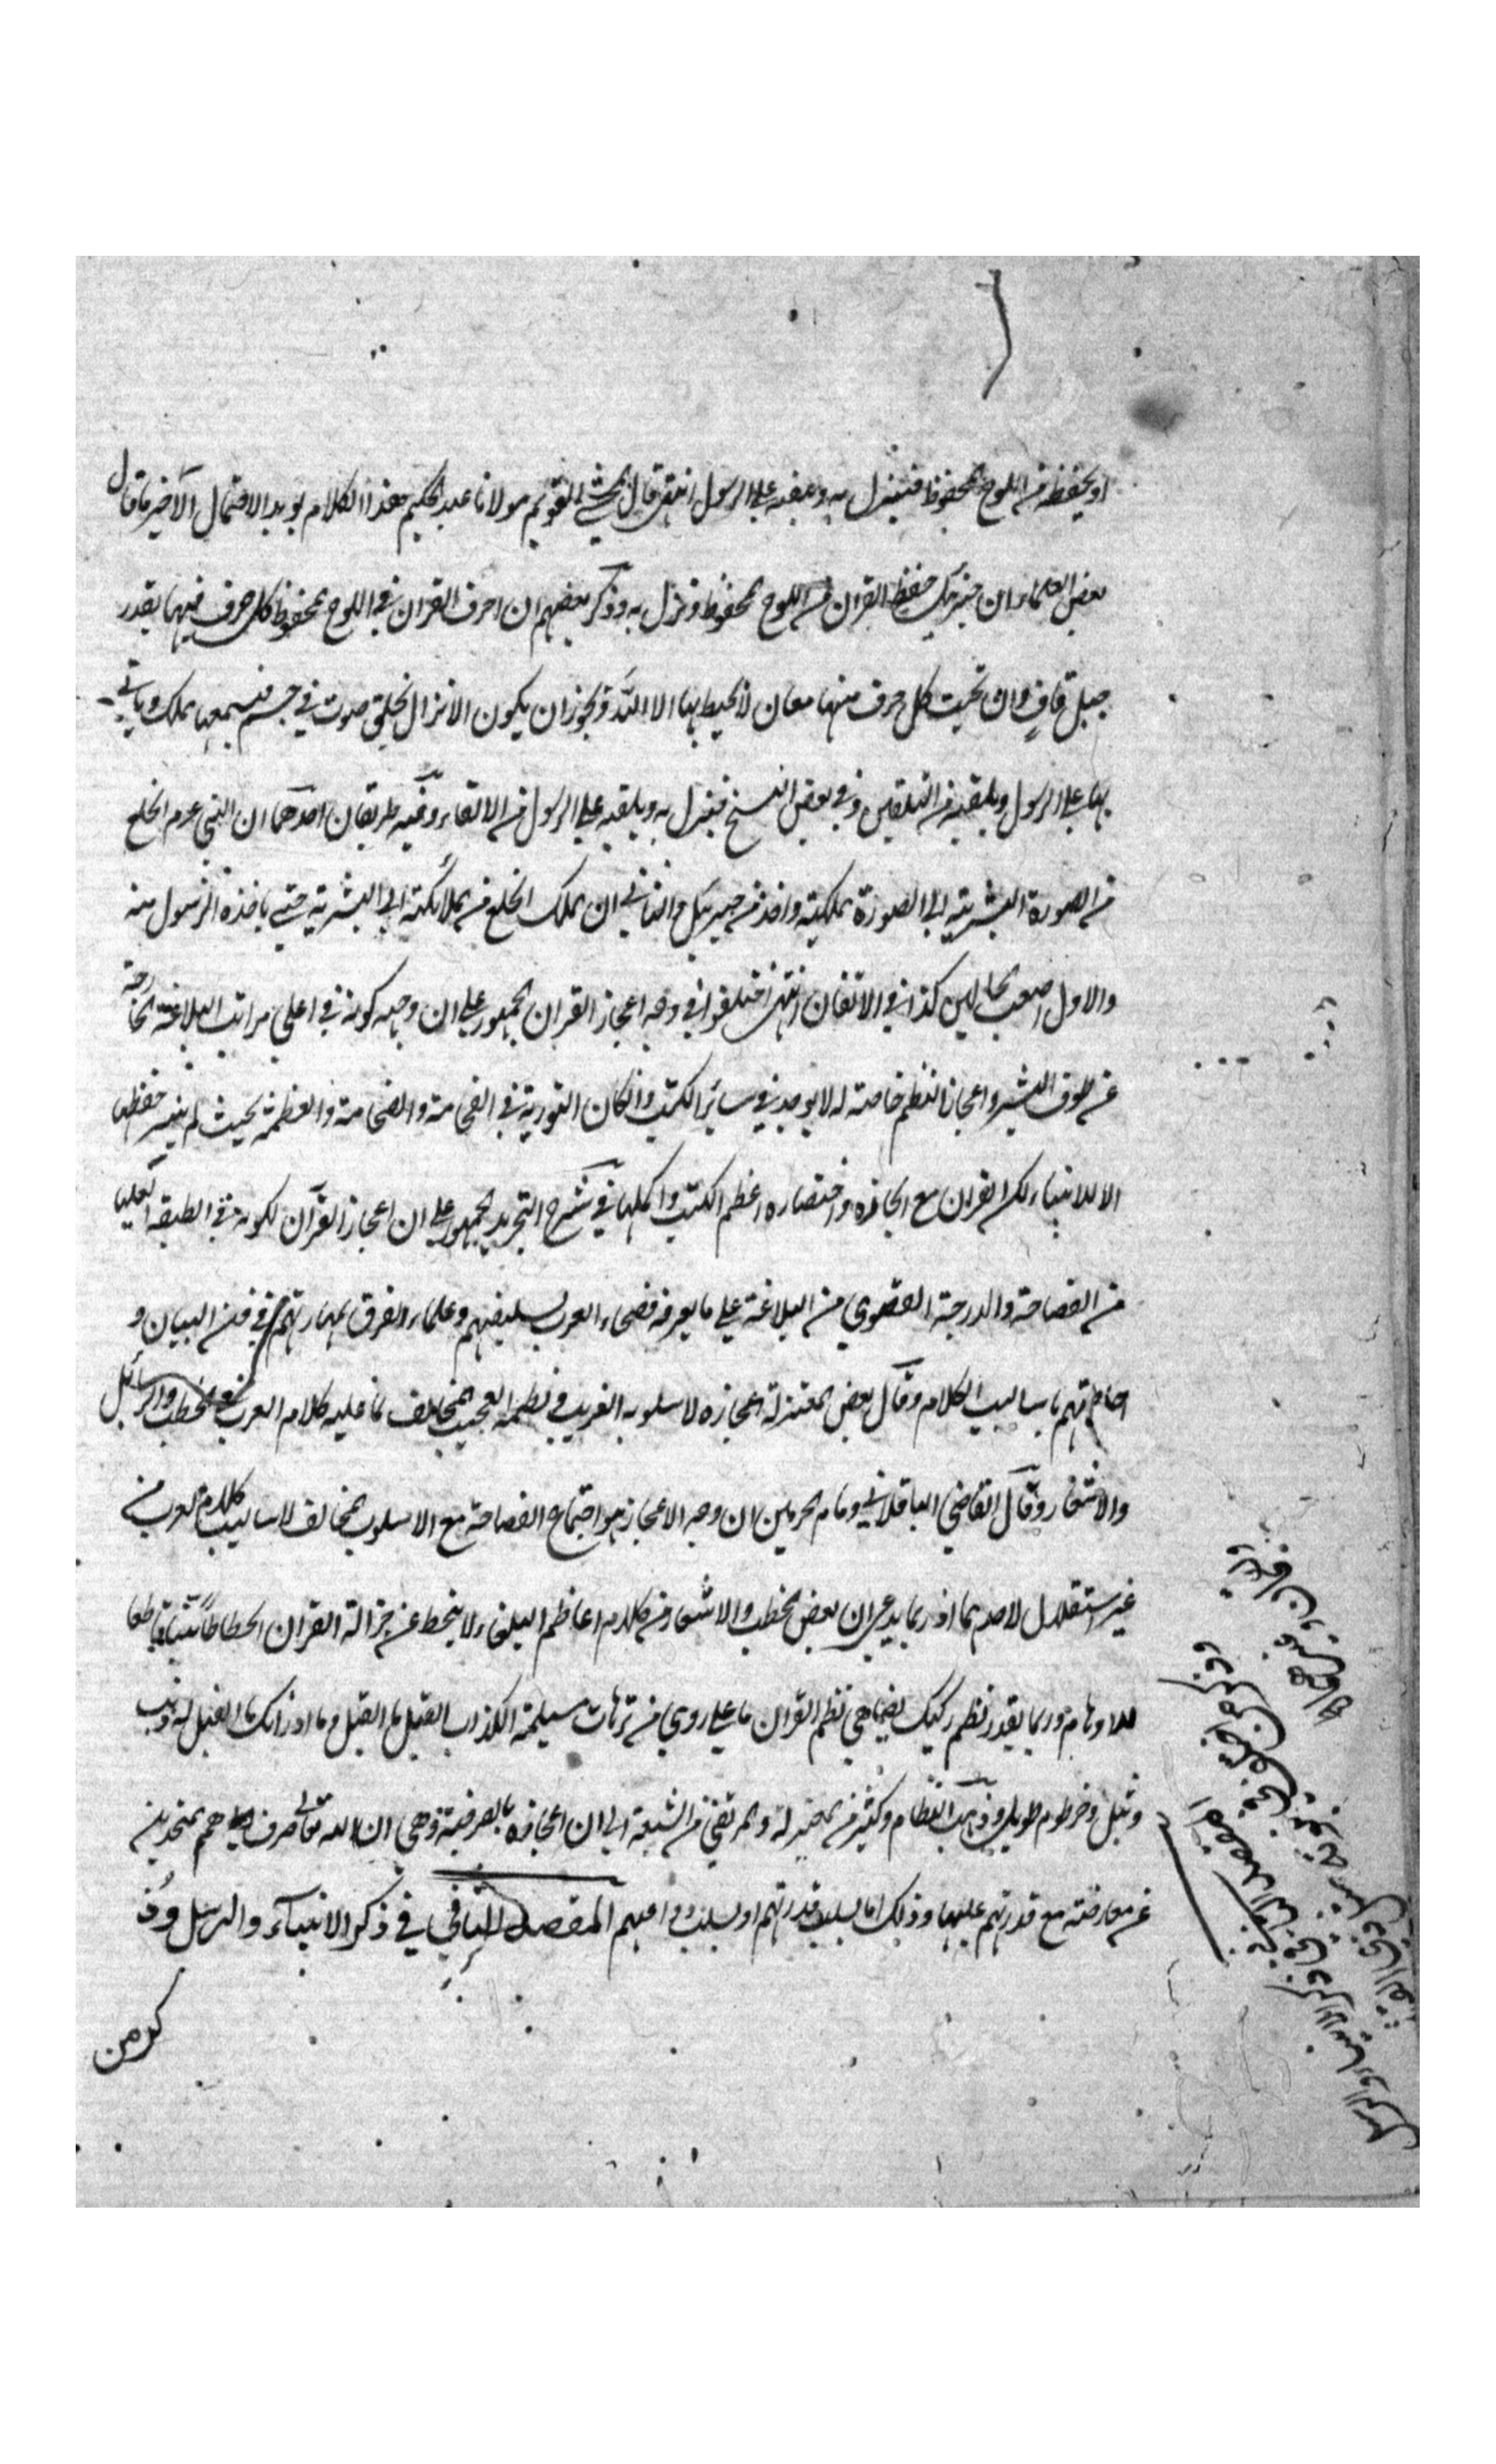 او يحفظه من اللوح المحفوظ فينزل به ويلقيه على الرسول انتهى قال المحشي القويم مولانا عبد الحكيم هذا الكلام يويد الاحتمال الآخر ما قال
بعض العلماء ان جبرئيل حفظ القران من اللوح المحفوظ ونزل به وذكر بعضهم ان احرف القران في اللوح المحفوظ كل حرف فيها بقدر
جبل قاف وان تحت كل حرف منها معان لا يحيط بها الا الله ويجوز ان يكون الانزال بخلق صوت في جسم فيسمعها الملك وياتي
بها على الرسول ويلقيه من التلقين وفي بعض النسخ فينزل به ويلقيه على الرسول من الالقاء وفيه طريقان احدهما ان النبي عم انخلع
من الصورة البشرية الى الصورة الملكية واخذ من جبرئيل والثاني ان الملك انخلع من الملائكة الى البشرية حتى ياخذه الرسول منه
والاول اصعب الحالين كذا في الاتقان انتهى اختلفوا في وجه اعجاز القران الجمهور على ان وجهه كونه في اعلى مراتب البلاغة الخارجة
عن طوق البشر واعجاز النظم خاصة له لا يوجد في سائر الكتب وان كان التورية في الفخامة والضخامة والعظمة بحيث لم يتيسر حفظها
الا للانبياء لكن القران مع ايجازه واختصاره اعظم الكتب واكملها في شرح التجريد الجمهور على ان اعجاز القرآن لكونه في الطبقة العليا
من الفصاحة والدرجة القصوى من البلاغة على ما يعرفه فصحاء العرب بسليقتهم وعلماء الفرق بمهارتهم في فن البيان و
احاطتهم باساليب الكلام وقال بعض المعتزلة اعجازه لاسلوبه الغريب ونظمه العجيب المخالف لما عليه كلام العرب في الخطب والرسائل
والاشعار وقال القاضي الباقلاني وامام الحرمين ان وجه الاعجاز هو اجتماع الفصاحة مع الاسلوب المخالف لاساليب كلام العرب من
غير استقلال لاحدهما اذ ربما يدعى ان بعض الخطب والاشعار من كلام اعاظم البلغاء لا ينحط عن جزالة القران انحطاطا بينا قاطعا
للاوهام وربما يقدر نظم ركيك يضاهي نظم القران ما على روي من ترهات مسيلمة الكذاب الفيل ما الفيل وما ادراك ما الفيل له ذنب
وثيل وخرطوم طويل وذهب النظام وكثير من المعتزلة والمرتضى من الشيعة الى ان اعجازه بالصرفة وهي ان الله تعالى صرف همم المتحدين
عن معارضته مع قدرتهم عليها وذلك اما بسلب قدرتهم او بسلب دواعيهم المقصد الثاني في ذكر الانبياء والرسل وذ
كر من